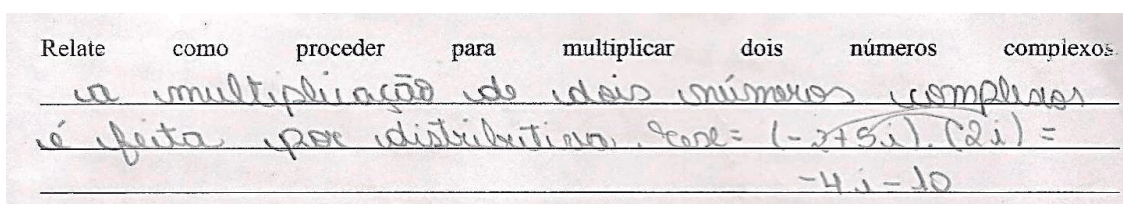 Relate como proceder para multiplicar dois números complexos.
a multiplicação de dois números complexos
é feita por distributiva. (-2+5i).(2i) =
-4i-10